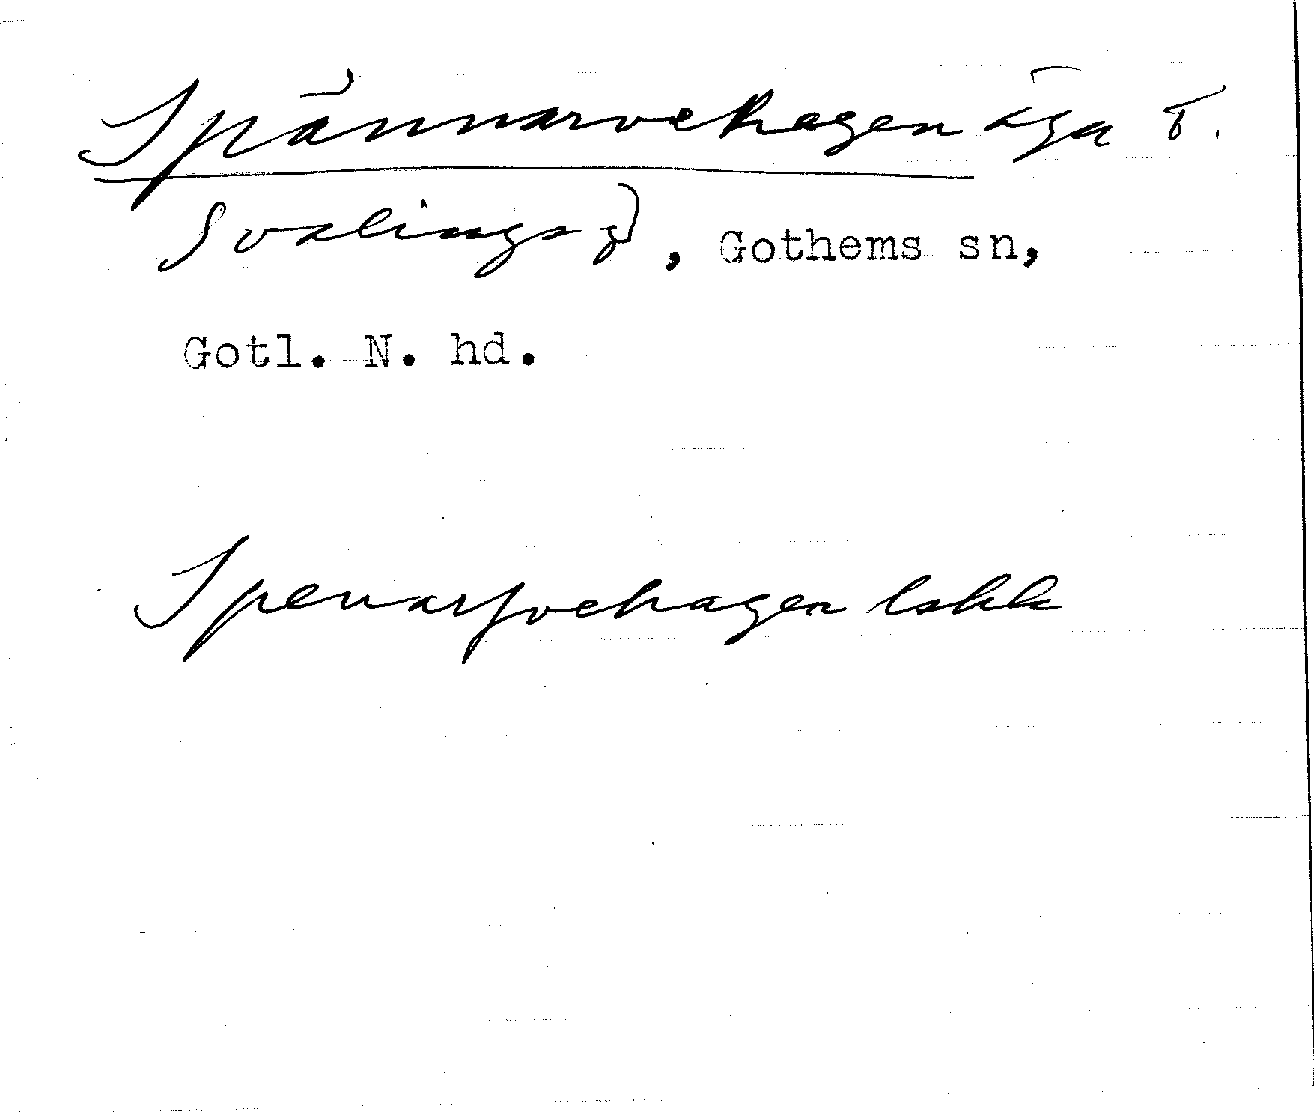 Spännarvehagen äga t.
Svalings gd, Gothems sn,
Gotl. N. hd.
Spenarfvehagen